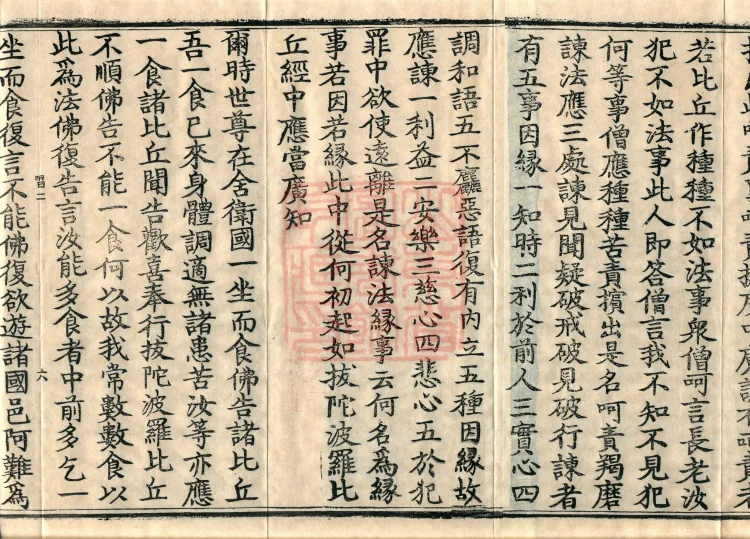 若比丘作種種不如法事衆僧呵言長老汝
犯不如法事此人即答僧言我不知不見犯
何等事僧應種種苦責擯出是名呵責羯磨
諫法應三處諫見聞疑破戒破見破行諫者
有五事因緣一知時二利於前人三實心四
調和語五不麤惡語復有内立五種因緣故
應諫一利益二安樂三慈心四悲心五於犯
罪中欲使遠離是名諫法緣事云何名爲緣
事若因若緣此中從何初起如拔陀波羅比
丘經中應當廣知
爾時世尊在舍衛國一坐而食佛告諸比丘
吾一食已來身體調適無諸患苦汝等亦應
一食諸比丘聞告歡喜奉行拔陀波羅比丘
不順佛告不能一食何以故我常數數食以
此爲法佛復告言汝能多食者中前多乞一
習二
六
坐而食復言不能佛復欲遊諸國邑阿難爲